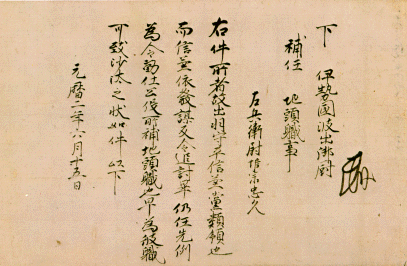 下 伊勢國波出御厨
補任 地頭職事
左兵衛尉惟宗忠久
右件所者故出羽守平信兼黨類領也
而信兼依發謀反令追討畢仍任先例
為令勤仕公役所補地頭職也早為彼職
可致沙汰之状如件以下
元暦二年六月十五日